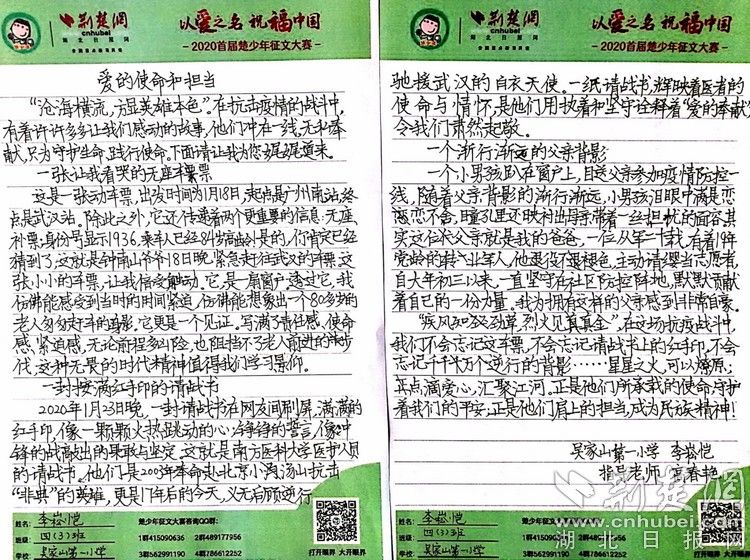 荆楚网
cnhubei.com
湖北日报网
以爱之名 祝福中国
-2020首届楚少年征文大赛-
爱的使命和担当
“沧海横流,方显英雄本色”在抗击疫情的战斗中,
有着许许多多让我们感动的故事,他们冲在一线,无私奉
献,只为守护生命,践行使命。下面请让我为您娓娓道来。
一张让我看哭的无座车票
这是一张动车票,出发时间为1月18日,起点是广州南站,终
点是武汉站。除此之外,它还传递着两个更重要的信息:无座,
补票,身份号显示1936,乘车人已经84岁高龄。是的,你肯定已经
猜到了,这就是钟南山爷爷18日晚,紧急赶往武汉的车票。这
张小小的车票,让我倍受触动。它,是一扇窗,透过它,我
仿佛能感受到当时的时间紧迫,仿佛能想象出一个80多岁的
老人匆匆赶车的造影。它更是一个见证。写满了责任感、使命
感、紧迫感,无论前程多纠险,也阻挡不了老人前进的步
伐。这种无畏的时代精神值得我们学习景仰。
一封按满红手印的请战书
2020年1月23日晚,一封请战书在网友间刷屏,满满的
红手印,像一颗颗火热跳动的心;铮铮的誓言,像冲
锋的战鼓出的果敢与坚定。这就是南方医科大学医护人员
的请战书。他们是2003年奉命赴北京小汤山抗击
“非典”的英雄,更是17年后的今天,义无后顾逆行
姓名: 李崧恺
班级: 四(3)班
学校: 吴家山第一小学
楚少年征文大赛咨询QQ群:
1群415090636 2群489177956
3群562991190 4群786612252
打开眼界 大开眼界
荆楚网
cnhubei.com
湖北日报网
以爱之名 祝福中国
-2020首届楚少年征文大赛-
驰援武汉的白衣天使。一纸请战书,辉映着医者的
使命与情怀,是他们用执着和坚守诠释着“爱的奉献”
令我们肃然起敬。
一个渐行渐远的父亲背影
一个小男孩趴在窗户上,目送父亲参加疫情防控一
线,随着父亲背影的渐行渐远,小男孩泪眼中满是恋
恋不舍,瞳孔里还映衬出母亲带着一丝担忧的面容。其
实这位父亲就是我的爸爸,一位从军十载,有着19年
党龄的转业军人,他退役不褪色,主动请缨当志愿者,
自大年初三以来,一直坚守在社区防控阵地,默默贡献
着自己的一份力量。我为拥有这样的父亲感到非常自豪。
“疾风知劲草,烈火见真金”。在这场抗疫战斗中,
我们不会忘记这车票,不会忘记请战书上的红手印,不会
忘记千千万万个逆行的背影……星星之火,可以燎原;
点点滴爱心,汇聚江河。正是他们所承载的使命,守护
着我们的平安;正是他们肩上的担当,成为民族精神!
吴家山第一小学 李崧恺
指导老师 高春艳
姓名: 李崧恺
班级: 四(3)班
学校: 吴家山第一小学
楚少年征文大赛咨询QQ群:
1群415090636 2群489177956
3群562991190 4群786612252
打开眼界 大开眼界
荆楚网
www.cnhubei.com
湖北日报网